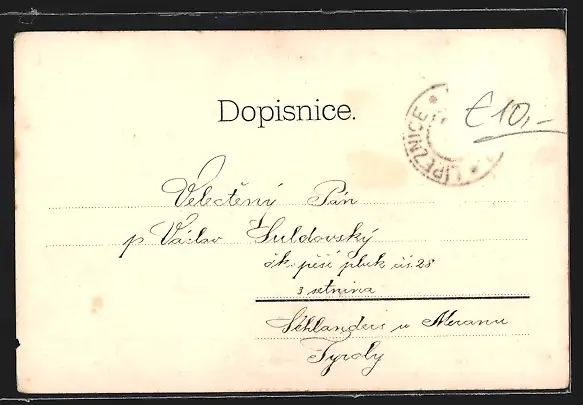 Dopisnice.
LIPEZNICE
€ 10,-
Velectěný Pán
p Václav Suldovský
čk. pěší pluk čís. 28
3 setnina
Schlanders u Meranu
Tyroly